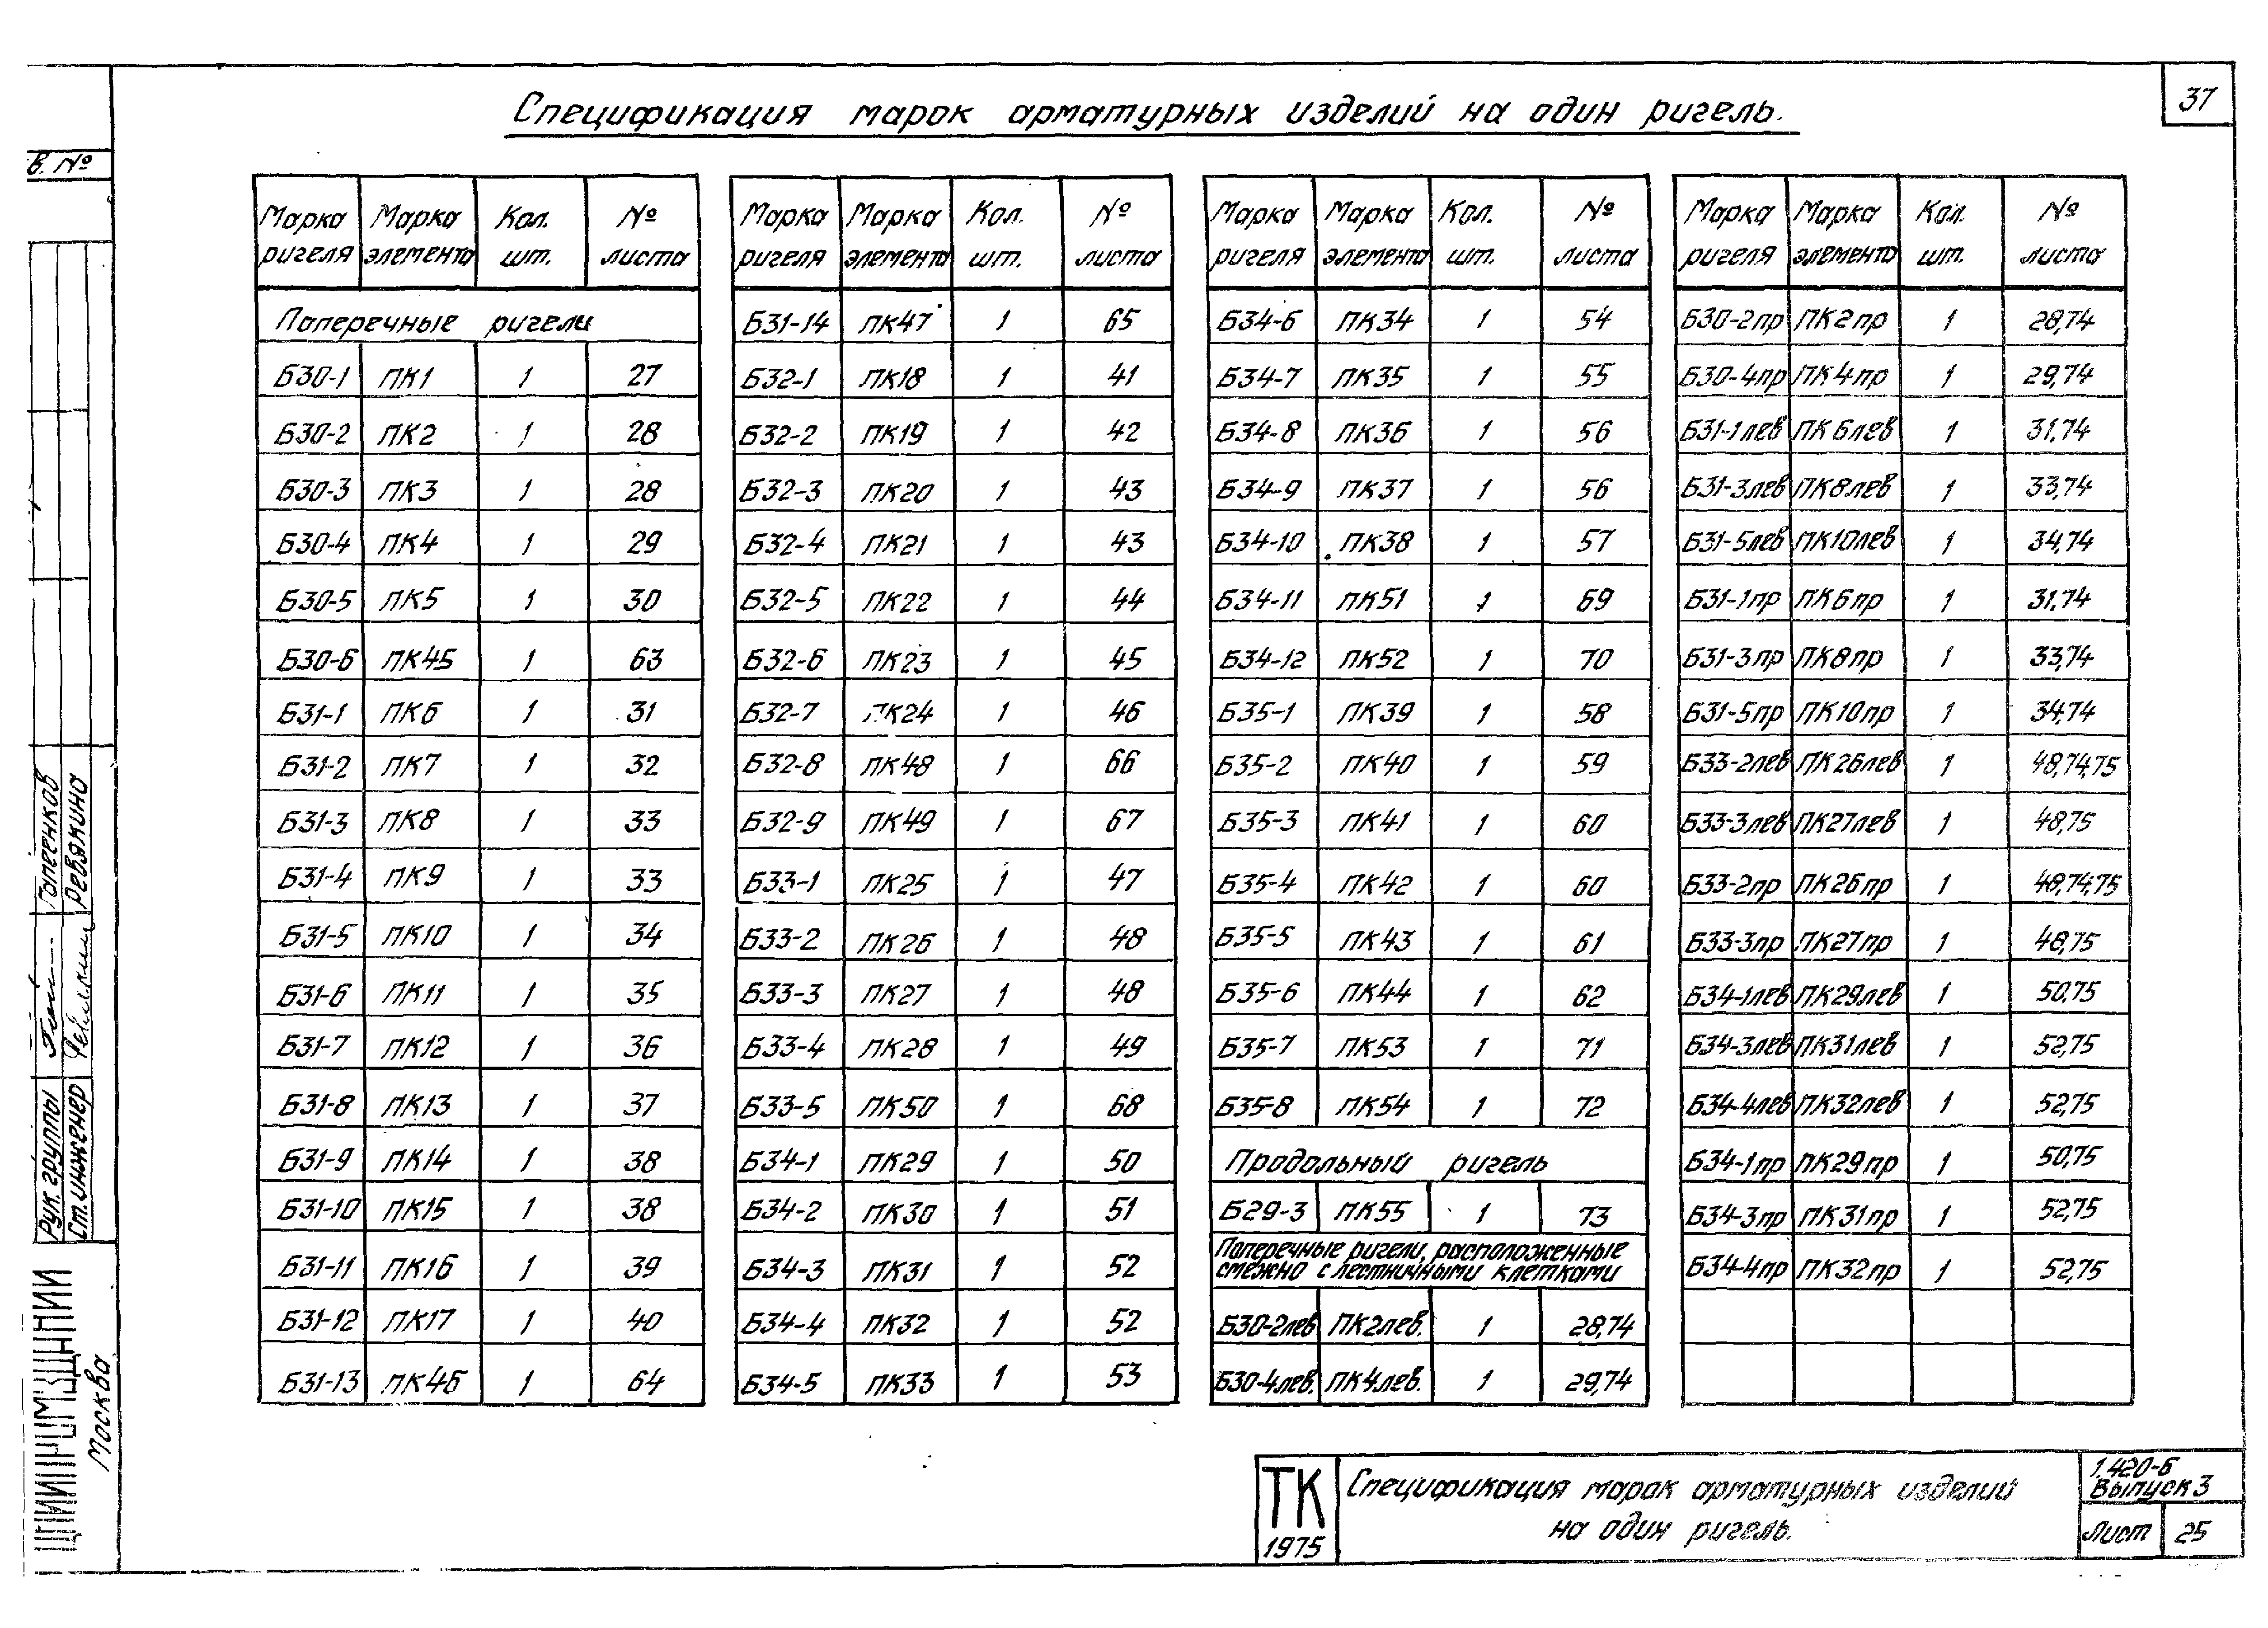 37
Спецификация марок арматурных изделий на один ригель.
В. №
Марка ригеля Марка элемента Кол. шт. № листа
Поперечные ригели
Б30-1 ПК1 1 27
Б30-2 ПК2 1 28
Б30-3 ПК3 1 28
Б30-4 ПК4 1 29
Б30-5 ПК5 1 30
Б30-6 ПК45 1 63
Б31-1 ПК6 1 31
Б31-2 ПК7 1 32
Б31-3 ПК8 1 33
Б31-4 ПК9 1 33
Б31-5 ПК10 1 34
Б31-6 ПК11 1 35
Б31-7 ПК12 1 36
Б31-8 ПК13 1 37
Б31-9 ПК14 1 38
Б31-10 ПК15 1 38
Б31-11 ПК16 1 39
Б31-12 ПК17 1 40
Б31-13 ПК46 1 64
Марка ригеля Марка элемента Кол. шт. № листа
Б31-14 ПК47 1 65
Б32-1 ПК18 1 41
Б32-2 ПК19 1 42
Б32-3 ПК20 1 43
Б32-4 ПК21 1 43
Б32-5 ПК22 1 44
Б32-6 ПК23 1 45
Б32-7 ПК24 1 46
Б32-8 ПК48 1 66
Б32-9 ПК49 1 67
Б33-1 ПК25 1 47
Б33-2 ПК26 1 48
Б33-3 ПК27 1 48
Б33-4 ПК28 1 49
Б33-5 ПК50 1 68
Б34-1 ПК29 1 50
Б34-2 ПК30 1 51
Б34-3 ПК31 1 52
Б34-4 ПК32 1 52
Б34-5 ПК33 1 53
Марка ригеля Марка элемента Кол. шт. № листа
Б34-6 ПК34 1 54
Б34-7 ПК35 1 55
Б34-8 ПК36 1 56
Б34-9 ПК37 1 56
Б34-10 ПК38 1 57
Б34-11 ПК51 1 69
Б34-12 ПК52 1 70
Б35-1 ПК39 1 58
Б35-2 ПК40 1 59
Б35-3 ПК41 1 60
Б35-4 ПК42 1 60
Б35-5 ПК43 1 61
Б35-6 ПК44 1 62
Б35-7 ПК53 1 71
Б35-8 ПК54 1 72
Продольный ригель
Б29-3 ПК55 1 73
Поперечные ригели, расположенные
смежно с лестничными клетками
Б30-2лев ПК2лев. 1 28,74
Б30-4лев. ПК4лев. 1 29,74
Марка ригеля Марка элемента Кол. шт. № листа
Б30-2пр ПК2пр 1 28,74
Б30-4пр ПК4пр 1 29,74
Б31-1лев ПК6лев 1 31,74
Б31-3лев ПК8лев 1 33,74
Б31-5лев ПК10лев 1 34,74
Б31-1пр ПК6пр 1 31,74
Б31-3пр ПК8пр 1 33,74
Б31-5пр ПК10пр 1 34,74
Б33-2лев ПК26лев 1 48,74,75
Б33-3лев ПК27лев 1 48,75
Б33-2пр ПК26пр 1 48,74,75
Б33-3пр ПК27пр 1 48,75
Б34-1лев ПК29лев 1 50,75
Б34-3лев ПК31лев 1 52,75
Б34-4лев ПК32лев 1 52,75
Б34-1пр ПК29пр 1 50,75
Б34-3пр ПК31пр 1 52,75
Б34-4пр ПК32пр 1 52,75
Рук. группы
Ст. инженер Ревякина
Москва
ТК
1975
Спецификация марок арматурных изделий
на один ригель.
1.420-6
Выпуск 3
Лист 25